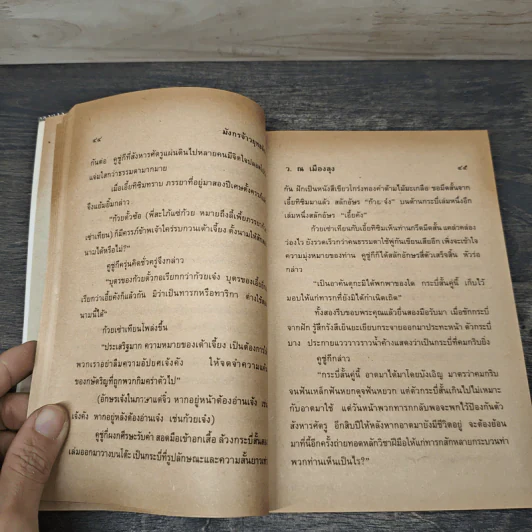 ๔๔
มังกรจ้าวยุทธ
กันต่อ คูซูกี้ที่สังหารศัตรูแผ่นดินไปหลายคนมีจิตใจปลอด
แจ่มใสกว่าธรรมดามากมาย
เมื่อเอี้ยทิซิมทราบ ภรรยาที่อยู่มาสองปีเศษตั้งครรภ์
จึงแย้มยิ้มกล่าว
"ก๊วยตั่วซ้อ (พี่สะใภ้แซ่ก๊วย หมายถึงลี้เพี้ย
เช่าเทียน) ก็มีครรภ์ ข้าพเจ้าใคร่รบกวนเต้าเจี้ยง ตั้งนามให้
นามได้หรือไม่?"
คูซูกี้ครุ่นคิดชั่วครู่จึงกล่าว
"บุตรของก๊วยตั่วกอเรียกกว่าก๊วยเจ๋ง บุตรของเอี้ย
เรียกว่าเอี้ยคังก็แล้วกัน มิว่าเป็นทารกหรือทาริกา ต่างใช้
นามนี้ได้"
ก๊วยเช่าเทียนโพล่งขึ้น
"ประเสริฐมาก ความหมายของเต้าเจี้ยง เป็นต้องการให้
พวกเราอย่าลืมความอัปยศเจ๋งคัง ให้จดจำความ
ของกษัตริย์ที่ถูกพวกกิมคร่าตัวไป"
(อักษรเจ๋งในภาษาแต้จิ๋ว หากอยู่หน้าต้องอ่านเจ้ง
เจ้งคัง หากอยู่หลังต้องอ่านเจ๋ง เช่นก๊วยเจ๋ง)
คูซูกี้ผงกศีรษะรับคำ สอดมือเข้าอกเสื้อ ล้วงกระบี่สั้น
เล่มออกมาวางบนโต๊ะ เป็นกระบี่ที่รูปลักษณะและความสั้นยาว
ว. ณ เมืองลุง
๔๕
กัน ฝักเป็นหนังสีเขียวโกร่งทองคำด้ามไม้มะเกลือ ขอมีดสั้นจาก
เอี้ยทิซิมมาแล้ว สลักอักษร "ก๊วย-เจ๋ง" บนด้านกระบี่เล่มหนึ่งอีก
เล่มหนึ่งสลักอักษร "เอี้ยคัง"
ก๊วยเช่าเทียนกับเอี้ยทิซิมเห็นท่านกรีดมีดสั้น แคล่วคล่อง
ว่องไว ยังรวดเร็วกว่าคนธรรมดาใช้พู่กันเขียนเสียอีก เพิ่งจะเข้าใจ
ความมุ่งหมายของท่าน คูซูกี้ก็ได้สลักอักษรสี่ตัวเสร็จสิ้น หัวร่อ
กล่าว
"เป็นอาคันตุกะมิได้พกพาของใด กระบี่สั้นคู่นี้ เก็บไว้
มอบให้แก่ทารกที่ยังมิได้กำเนิดเถิด"
ทั้งสองรีบขอบพระคุณแล้วยื่นสองมือรับมา เมื่อชักกระบี่
จากฝัก รู้สึกรังสีเย็นยะเยียบกระจายออกมาปะทะหน้า ตัวกระบี่
บาง ประกายแวววาวราวน้ำค้างแสดงว่าเป็นกระบี่ที่คมกริบยิ่ง
คูซูกี้กล่าว
"กระบี่สั้นคู่นี้ อาตมาได้มาโดยบังเอิญ มาตรว่าคมกริบ
จนฟันเหล็กฟันหยกดุจฟันหยวก แต่ตัวกระบี่สั้นเกินไปไม่เหมาะ
กับอาตมาใช้ แต่วันหน้าพวกทารกกลับพอจะพกไว้ป้องกันตัว
สังหารศัตรู อีกสิบปีให้หลังหากอาตมายังมีชีวิตอยู่ จะต้องย้อน
มาที่นี้อีกครั้งถ่ายทอดหลักวิชาฝีมือให้แก่ทารกสักหลายกระบวนท่า
พวกท่านเห็นเป็นไร?"